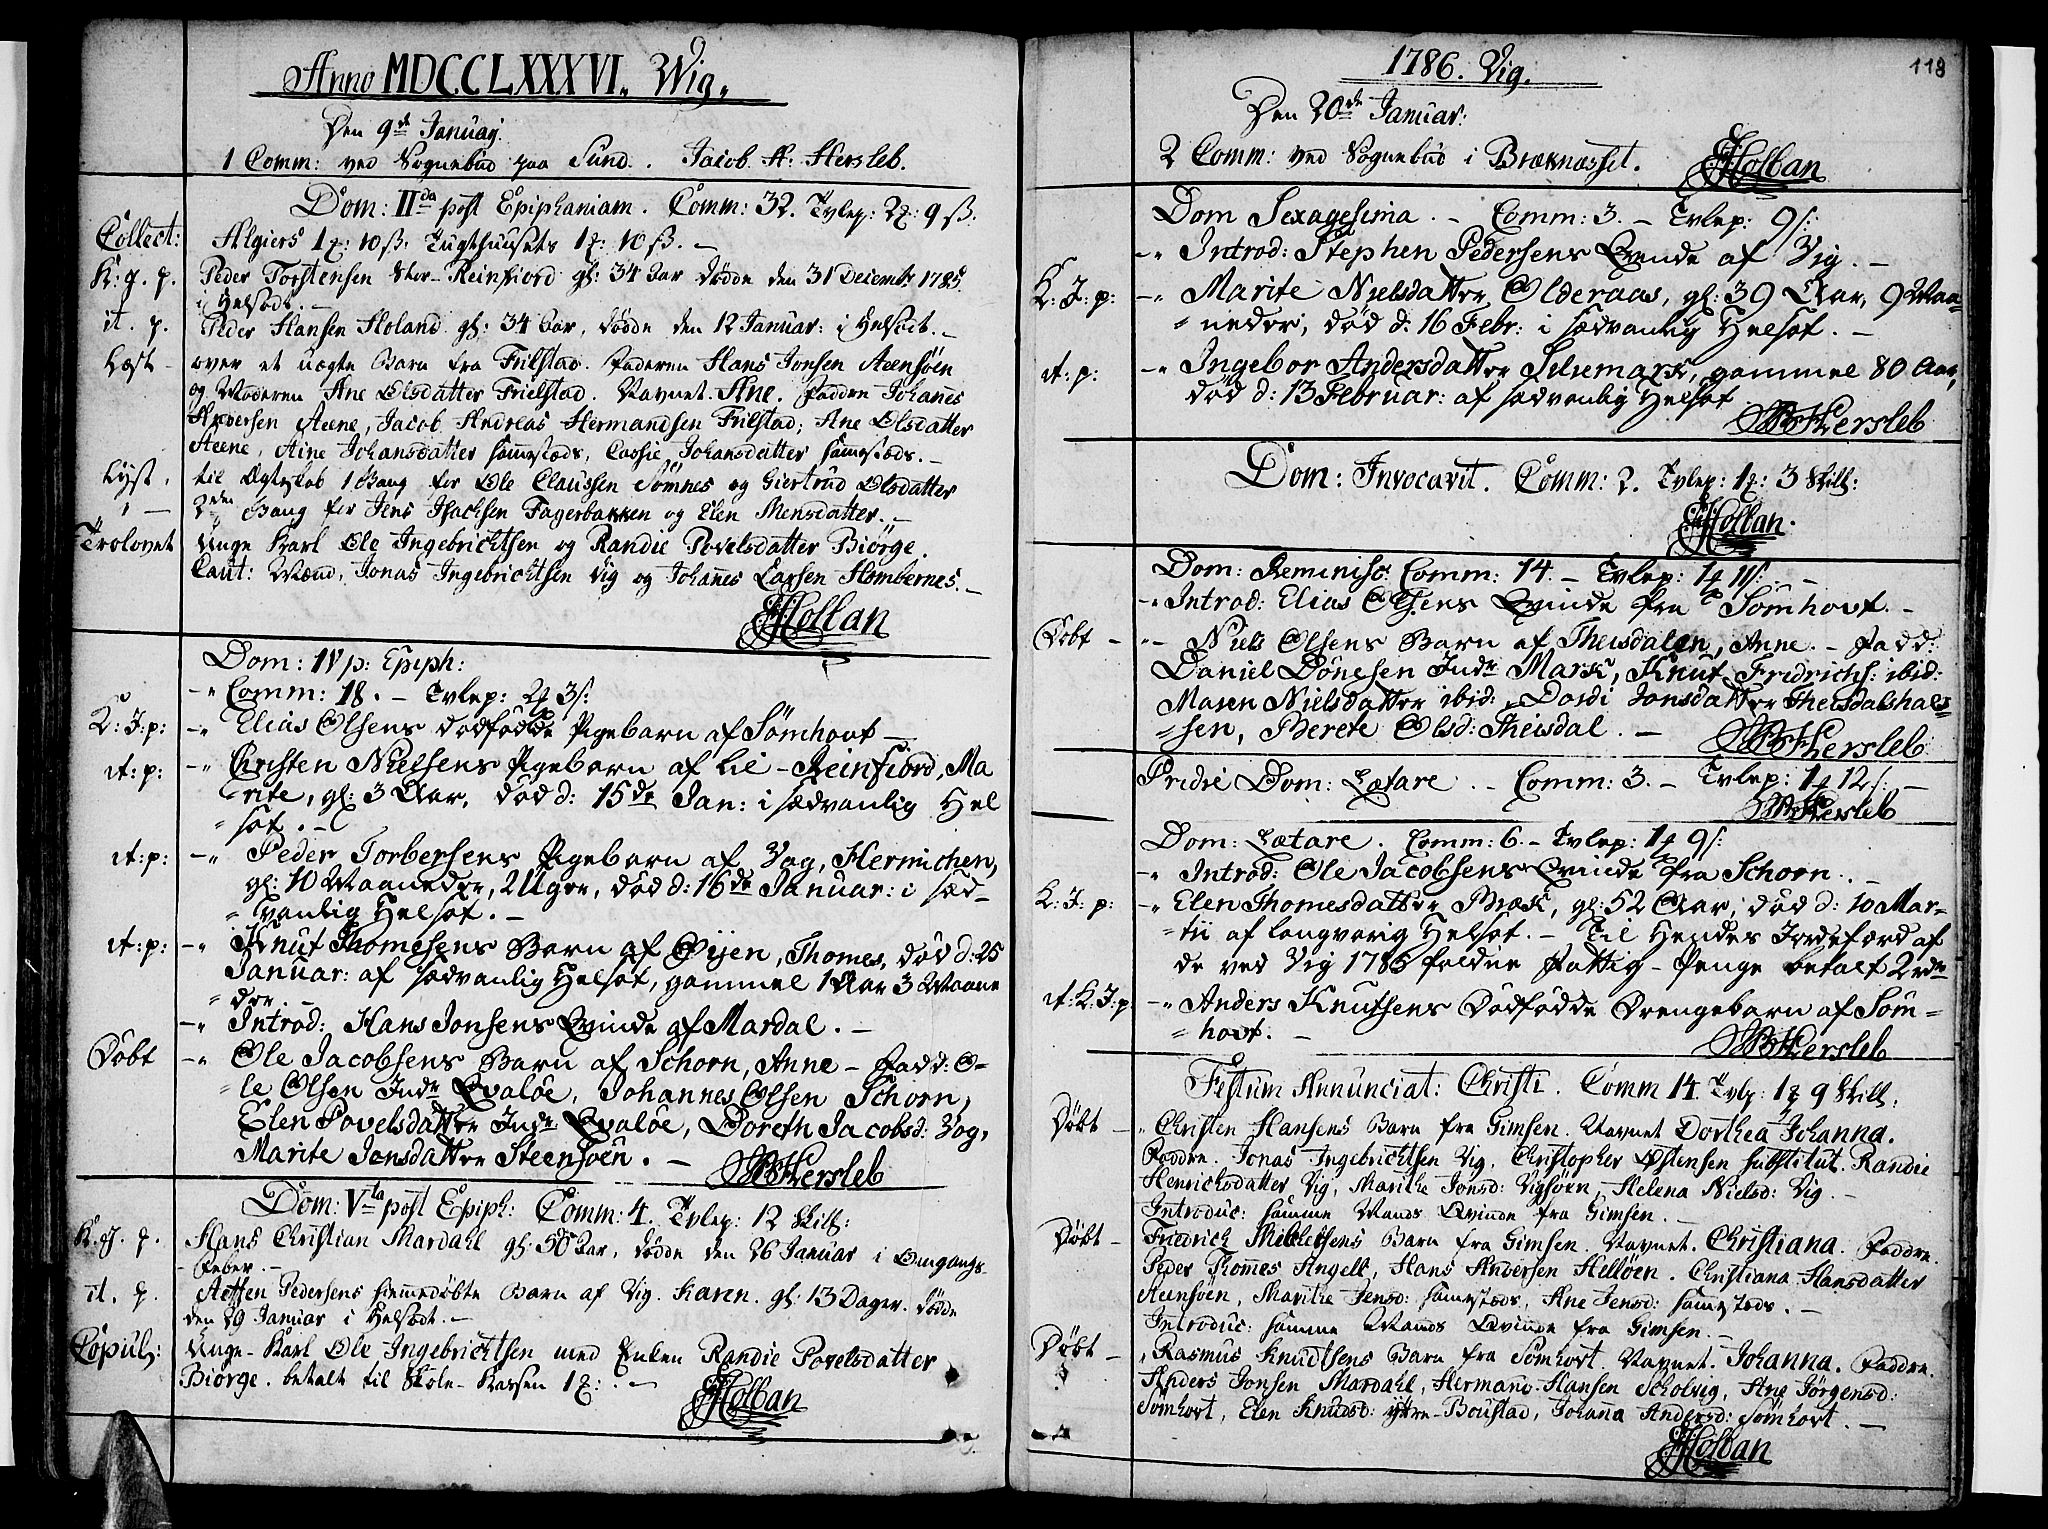 Anno MDCCLXXXVI. Wig.
Den 9de Januarj.
1 Comm: ved Sognebud paa Sund. Jacob H: Hersleb.
Dom: IIda post Epiphaniam. Comm: 32. Tvlep: 2 9 ß.
Collect: Algiers 1 10 ß. Tugthuusets 1 10 ß. –
K: J. p. Peder Torstensen Stor-Reinfiord gl: 34 Aar døde den 31 Decembr 1785.
i Helsodt. –
it. p. Peder Hansen Holand gl: 34 Aar, døde den 12 Januar: i Helsodt. –
Læst – over et uægte Barn fra Frilstad. Faderen Hans Jonsen Steensöen
og Moderen Ane Olsdatter Frielstad. Navnet Ane. Faddre Johanes
Andersen Steene, Jacob Andreas Hermandsen Frilstad, Ane Olsdatter
Steene, Ane Johansdatter sammesteds, Cassie Johansdatter sammesteds. –
Lyst, til Ægteskab 1 Gang for Ole Claussen Sömnes og Giertrud Olsdatter
2den Gang for Jens Isachsen Fagerbakken og Elen Mensdatter. –
Trolovet Unge Karl Ole Ingebrichtsen og Randie Povelsdatter Biörge.
Caut: Mænd, Jonas Ingebrichtsen Vig og Johanes Larsen Hombernes. –
Holban
Dom: IV p: Epiph:
–" Comm: 18. – Tvlep: 2 3 s:
K: J: p: –" Elias Olsens dødfødde Pigebarn af Sømhovt –
it: p: –" Christen Nielsens Pigebarn af Lil-Reinfiord, Ma
rite, gl: 3 Aar, død d: 15de Jan: i sædvanlig Hel
=sot. –
it: p: –" Peder Torbersens Pigebarn af Vog, Hermichen,
gl: 10 Maaneder, 2 Uger, død d: 16de Januar: i sæd-
=vanlig Helsot. –
it: p: –" Knut Thomesens Barn af Øijen, Thomes, død d: 25
Januar: af sædvanlig Helsot, gammel 1 Aar 3 Maane
=der. –
–" Introd: Hans Jonsens Qvinde af Mardal. –
Døbt –" Ole Jacobsens Barn af Schorn, Anne – Fadd: O-
=le Olsen Indr Qvaløe, Johannes Olsen Schorn,
Elen Povelsdatter Indr Qvaløe, Doreth Jacobsd: Vog,
Marite Jonsdatter Steensøen. –
Hersleb
Dom: Vta post Epiph: Comm: 4. Tvlep: 12 Skill:
K. J. p. Hans Christian Mardahl gl: 50 Aar, døde den 26 Januar i Omgangs
-Feber. –
it. p. Pedersens hiemmedøbte Barn af Vig. Karen. gl: 13 Dager. døde
den 29 Januar i Helsodt. –
Copul: Unge-Karl Ole Ingebrichtsen med Enken Randie Povelsdatter
Biörge. betalt til Skole-Kassen 1 : –
Holban
1786. Vig. 118
Den 20de Januar:
2 Comm: ved Sognebud i Bræknæsset. Holban
Dom Sexagesima. – Comm: 3. – Tvlep: 9 s:
–" Introd: Stephen Pedersens Qvinde af Vig. –
K: J: p: –" Marite Nielsdatter Olderaas, gl: 39 Aar, 9 Maa-
=neder, død d: 16 Febr: i sædvanlig Helsot. –
it: p: –" Ingebor Andersdatter Silsemark, gammel 80 Aar,
død d: 13 Februar: af sædvanlig Helsot
Hersleb
Dom: Invocavit. Comm: 2. Tvlep: 1 3 Skill:
Holban.
Dom: Reminisc: Comm: 14. – Tvlep: 1 11 s: –
–" Introd: Elias Olsens Qvinde fra Sömhovt. –
Døbt – –" Niels Olsens Barn af Theisdalen, Anne. – Fadd:
Daniel Dönesen Indr Mark, Knut Fridrichs: ibid:
Maren Nielsdatter ibid:, Dordi Jonsdatter Theisdalshal-
=sen, Berete Olsd: Theisdal. –
Hersleb
Pridie Dom: Lætare. – Comm: 3. – Tvlep: 1 12 s: –
Hersleb
Dom: Lætare. Comm: 6. – Tvlep: 1 9 s:
–" Introd: Ole Jacobsens Qvinde fra Schorn. –
K: J: p: –" Elen Thomesdatter Bræk, gl: 52 Aar, død d: 10 Mar-
=tii af langvarig Helsot. – Til Hendes Jordefærd af
de ved Vig 1785 faldne Fattig-Penge betalt 2 rdr
it: K: J: p –" Anders Knutsens Dödfödde Drengebarn af Söm-
=hovt. –
Hersleb
Festum Annunciat: Christi. Comm 14. Tvlp: 1 9 Skill:
Döbt – " Christen Hansens Barn fra Gimsen. Navnet Dorthea Johanna.
Faddre. Jonas Ingebrichtsen Vig, Christopher Östensen substitut. Randie
Henrichsdatter Vig, Marithe Jonsd: Vigsöen, Helena Nielsd: Vig. –
Introduc: samme Mands Qvinde fra Gimsen. –
Döbt – Fridrich Mickelsens Barn fra Gimsen. Navnet. Christiana. Faddre.
Peder Thomes Angell, Hans Andersen Hellöen. Christiana Hansdatter
Steensöen, Marithe Jensd: sammesteds, Ane Jensd: sammesteds. –
Introduc: samme Mands Qvinde fra Gimsen. –
Döbt – , Rasmus Knudtsens Barn fra Sömhovt. Navnet. Johanna. Faddre.
Anders Jonsen Mardahl, Hermand Hansen Scholvig, Ane Jörgensd:
Sömhovt, Elen Knudsd: yttre-Boustad, Johanna Andersd: Sömhovt. –
Holban